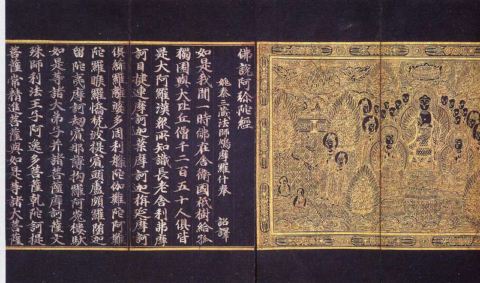 佛說阿弥陁經
姚秦三藏法師鳩摩羅什奉 詔譯
如是我聞一時佛在舍衛國祇樹給孤
獨園與大比丘僧千二百五十人俱皆
是大阿羅漢衆所知識長老舍利弗摩
訶目揵連摩訶迦葉摩訶迦栴延摩訶
俱絺羅離婆多周利槃陁伽難陁阿難
陁羅睺羅憍梵波提賓頭盧頗羅墮迦
留陁夷摩訶劫賓那薄拘羅阿㝹樓馱
如是等諸大弟子并諸菩薩摩訶薩文
殊師利法王子阿逸多菩薩乾陁訶提
菩薩常精進菩薩與如是等諸大菩薩